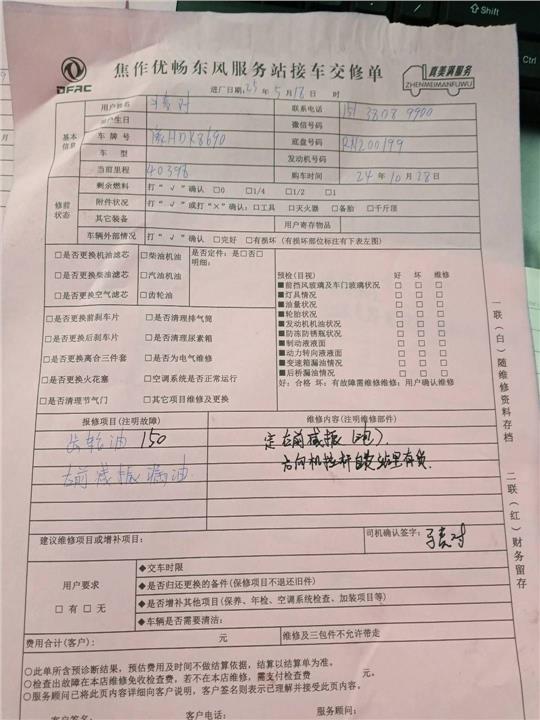 Shift
Ctrl
DFAC
焦作优畅东风服务站接车交修单
真美满服务
ZHENMEIMANFUWU
进厂日期:25年5月18日 时
用户姓名
联系电话 151 3808 9900
用户生日
微信号码
基本信息
车牌号 HDK8690
底盘号码 RN200199
车型
发动机号码
当前里程 40398
购车时间 24年10月28日
修前状态
剩余燃料 打“√”确认 □0 □1/4 □1/2 □1
附件状况 打“√”或打“×”确认:□工具 □灭火器 □备胎 □千斤顶
其它装备
用户寄存物品
车辆外部情况 打“√”确认 □完好 □有损坏 (有损坏部位标注有下表左图)
□是否更换机油滤芯 □柴油机油
□是否更换柴滤芯 □汽油机油
□是否更换空气滤芯 □齿轮油
是否定件:是□否□
明细:
□是否更换前刹车片 □是否清理排气筒
□是否更换后刹车片 □是否清理尿素箱
□是否更换离合三件套 □是否为电气维修
□是否更换火花塞 □空调系统是否正常运行
□是否清理节气门 □其它项目维修及更换
预检(目视) 好 坏 维修
■前挡风玻璃及车门玻璃状况 □ □ □
■灯具情况 □ □ □
■油量状况 □ □ □
■轮胎状况 □ □ □
■发动机机油状况 □ □ □
■防冻防锈瓶状况 □ □ □
■制动液液面 □ □ □
■动力转向液液面 □ □ □
■变速箱漏油情况 □ □ □
■后桥漏油情况 □ □ □
好:合格 坏:有故障需维修维修:用户确认维修
报修项目(注明故障)
维修内容(注明维修部件)
齿轮油 150
左前减振漏油
定右前减振
方向机拉杆
站里有货
建议维修项目或增补项目:
司机确认签字:
用户要求
□有 □无
◆交车时限
◆是否归还更换的备件(保修项目不退还旧件)
◆是否增补其他项目(保养、年检、空调系统检查、加装项目等)
◆车辆是否需要清洁:
费用合计(客户): 元
维修及三包件不允许带走
○此单所含预诊断结果,预估费用及时间不做结算依据,结算以结算单为准。
○检查出故障在本店维修免收检查费,若不在本店维修,需支付检查费 元。
○服务顾问已将此页内容详细向客户说明,客户签名则表示已理解并接受此页内容。
客户签名: 客户电话: 服务顾问:
一联(白)随维修资料存档
二联(红)财务留存